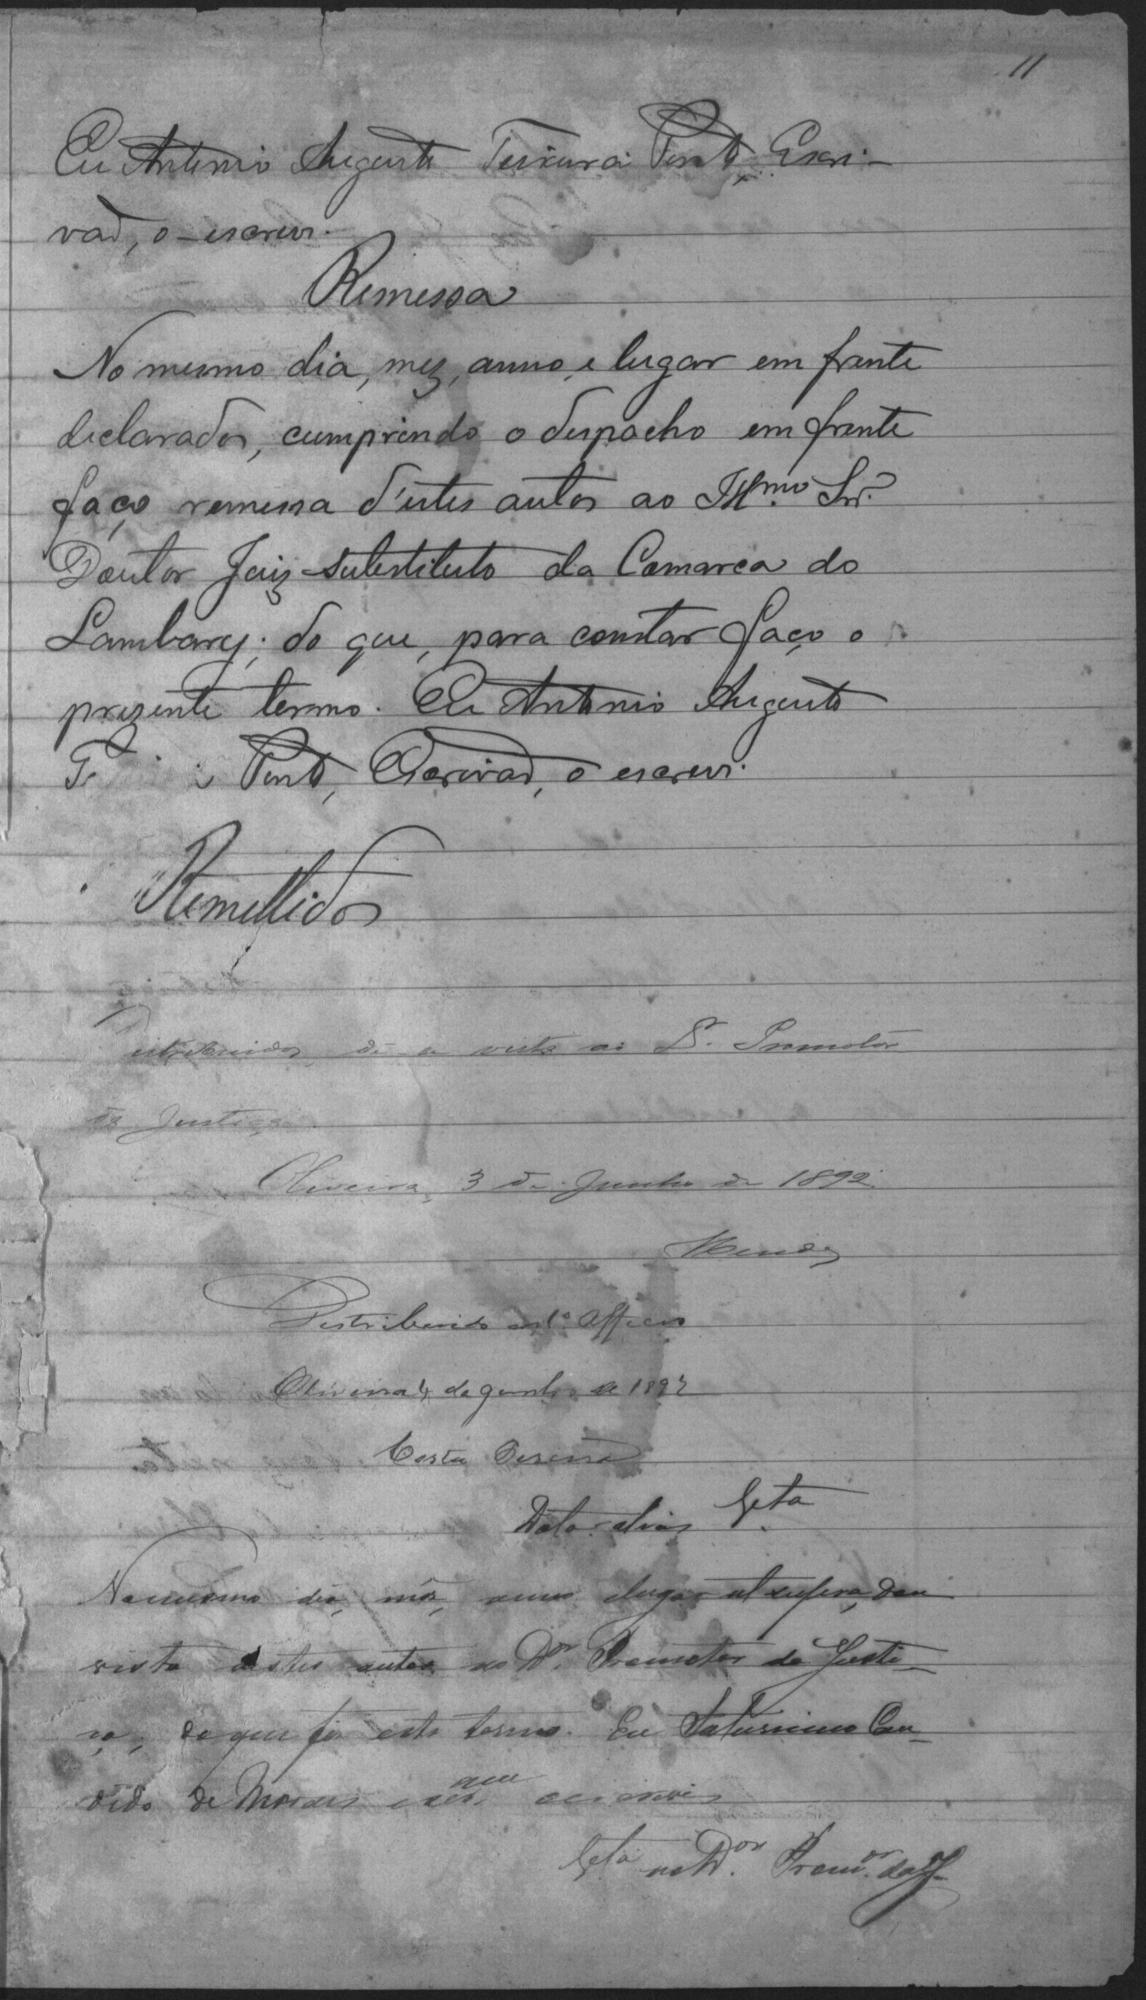 11
Eu Antonio Augusto Teixeira Pinto, Escri-
vaõ, o escrevi.
Remessa
No mesmo dia, mez, anno, e lugar em frente
declarados, cumprindo o despacho em frente
faço remessa d'estes autos ao Ill.mo Snr.
Doutor Juiz substituto da Comarca do
Lambary; do que, para constar faço o
prezente termo. Eu Antonio Augusto
Pinto, Escrivaõ, o escrevi.
Remettidos
Distribuidos, dê-se vista ao Dr. Promotor
da Justiça.
Oliveira, 3 de Junho de 1892.
Mendes
Destribuido ao 1º Officio
Oliveira 4 de junho de 1892
Costa Pereira
Data alias Vsta
No mesmo dia, mês, anno e lugar ut supra, dou
vista destes autos ao Dr. Promotor da Justi-
ça; do que fiz este termo. Eu Saturnino Can-
dido de Moraes escr.am que escrevi
Vsta ao Dor. Promor. da J.